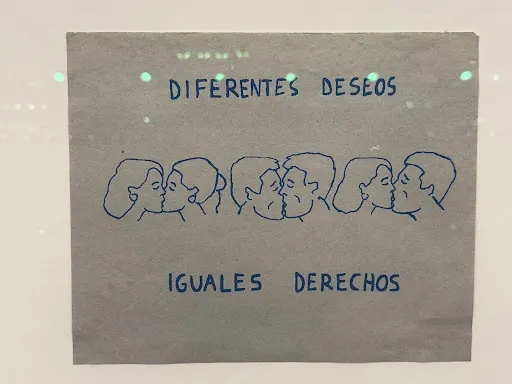 DIFERENTES DESEOS
IGUALES DERECHOS